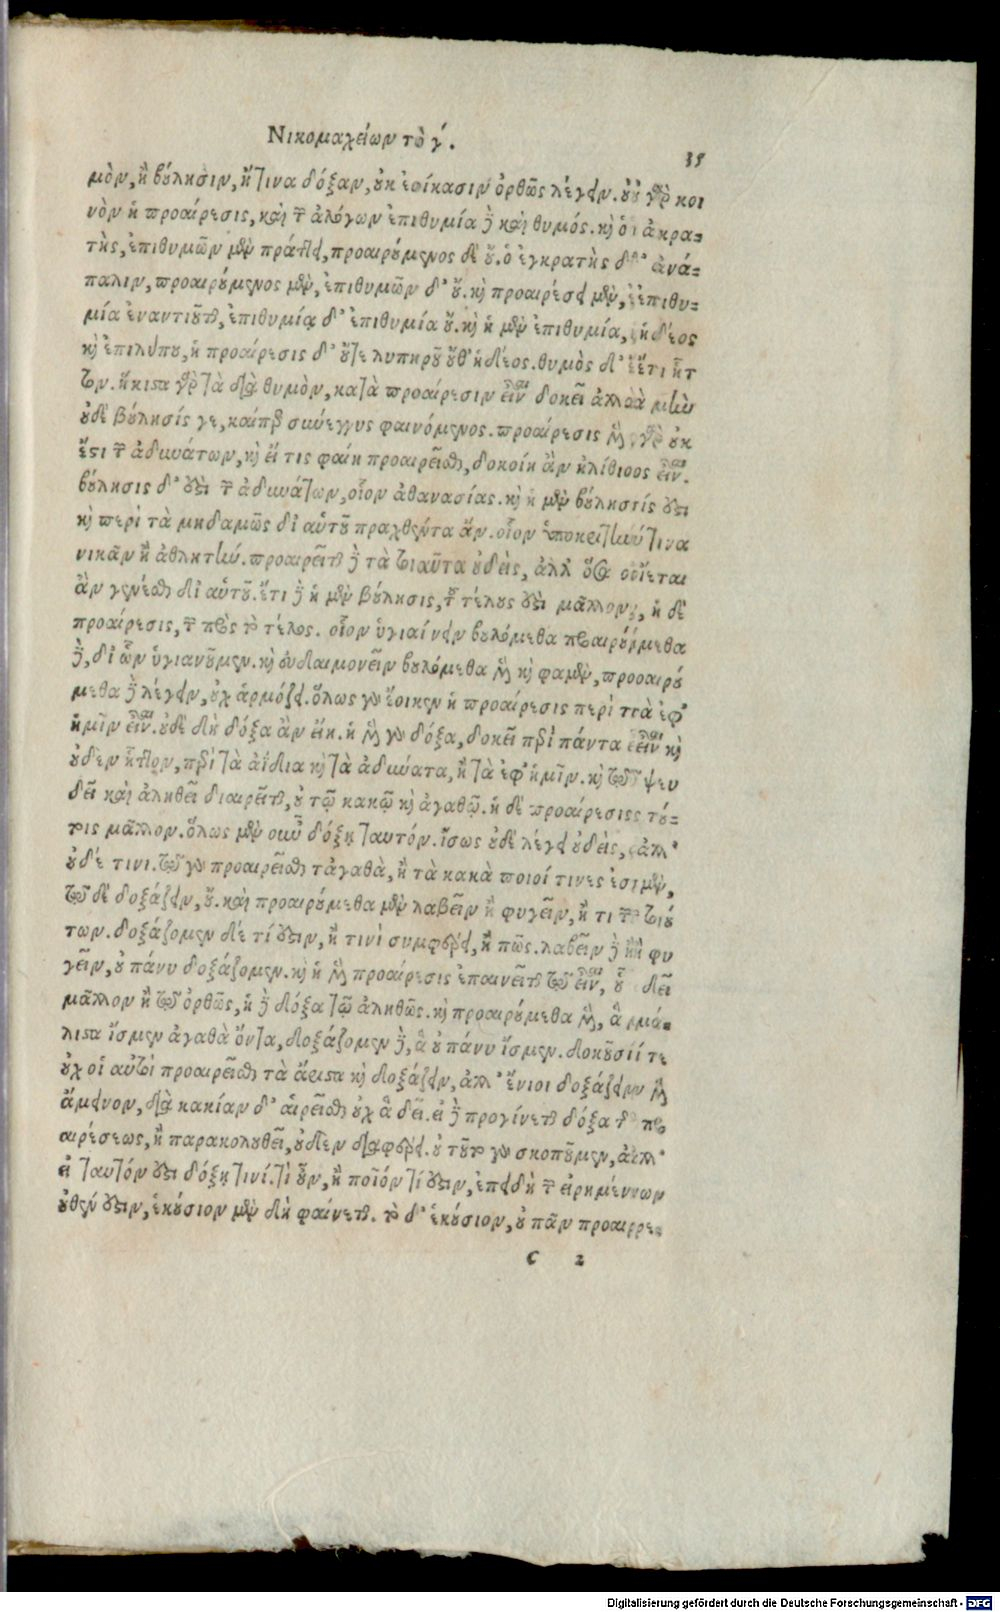 Νικομαχείων τὸ γ΄.
35
μὸν, ἢ βούλησιν, ἤ τινα δόξαν, οὐκ ἐοίκασιν ὀρθῶς λέγειν. οὐ γὰρ κοι
νὸν ἡ προαίρεσις, καὶ τῶν ἀλόγων ἐπιθυμία δὲ καὶ θυμός. καὶ ὁ ἀκρα-
τὴς, ἐπιθυμῶν μὲν πράττει, προαιρούμενος δὲ οὔ. ὁ ἐγκρατὴς δ' ἀνά-
παλιν, προαιρούμενος μὲν, ἐπιθυμῶν δ' οὔ. καὶ προαιρέσει μὲν, ἐπιθυ-
μία ἐναντιοῦται, ἐπιθυμίᾳ δ' ἐπιθυμία οὔ. καὶ ἡ μὲν ἐπιθυμία, ἡδέος
καὶ ἐπιλύπου, ἡ προαίρεσις δ' οὔτε λυπηροῦ οὔθ' ἡδέος. θυμὸς δ' ἔτι ἧτ
τον. ἥκιστα γὰρ τὰ διὰ θυμὸν, κατὰ προαίρεσιν εἶναι δοκεῖ ἀλλὰ μὴν
οὐδὲ βούλησίς γε, καίπερ σύνεγγυς φαινόμενος. προαίρεσις μὲν γὰρ οὐκ
ἔστι τῶν ἀδυνάτων, καὶ εἴ τις φαίη προαιρεῖσθαι, δοκοίη ἂν ἠλίθιος εἶναι.
βούλησις δ' ἐστὶ τῶν ἀδυνάτων, οἷον ἀθανασίας. καὶ ἡ μὲν βούλησίς ἐστι
καὶ περὶ τὰ μηδαμῶς δι' αὑτοῦ πραχθέντα ἄν. οἷον ὑποκριτήν τινα
νικᾶν ἢ ἀθλητήν. προαιρεῖται δὲ τὰ τοιαῦτα οὐδεὶς, ἀλλ' ὅσα οἴεται
ἂν γενέσθαι δι' αὑτοῦ. ἔτι δὲ ἡ μὲν βούλησις, τοῦ τέλους ἐστὶ μᾶλλον, ἡ δὲ
προαίρεσις, τῶν πρὸς τὸ τέλος. οἷον ὑγιαίνειν βουλόμεθα προαιρούμεθα
δὲ, δι' ὧν ὑγιανοῦμεν. καὶ εὐδαιμονεῖν βουλόμεθα μὲν καὶ φαμὲν, προαιρού
μεθα δὲ λέγειν, οὐχ ἁρμόζει. ὅλως γὰρ ἔοικεν ἡ προαίρεσις περὶ τὰ ἐφ'
ἡμῖν εἶναι. οὐδὲ δὴ δόξα ἂν εἴη. ἡ μὲν γὰρ δόξα, δοκεῖ περὶ πάντα εἶναι καὶ
οὐδὲν ἧττον, περὶ τὰ ἀΐδια καὶ τὰ ἀδύνατα, ἢ τὰ ἐφ' ἡμῖν. καὶ τῷ ψευ
δεῖ καὶ ἀληθεῖ διαιρεῖται, οὐ τῷ κακῷ καὶ ἀγαθῷ. ἡ δὲ προαίρεσις τού-
τοις μᾶλλον. ὅλως μὲν οὖν δόξῃ ταυτόν. ἴσως οὐδὲ λέγει οὐδεὶς, ἀλλ'
οὐδέ τινι. τῷ γὰρ προαιρεῖσθαι τἀγαθὰ, ἢ τὰ κακὰ ποιοί τινές ἐσμὲν,
τῷ δὲ δοξάζειν, οὔ. καὶ προαιρούμεθα μὲν λαβεῖν ἢ φυγεῖν, ἤ τι τῶν τοιού
των. δοξάζομεν δὲ τί ἐστιν, ἢ τινὶ συμφέρει, ἢ πῶς. λαβεῖν δὲ ἢ φυ
γεῖν, οὐ πάνυ δοξάζομεν. καὶ ἡ μὲν προαίρεσις ἐπαινεῖται τῷ εἶναι, οὗ δεῖ
μᾶλλον ἢ τῷ ὀρθῶς, ἡ δὲ δόξα τῷ ἀληθῶς. καὶ προαιρούμεθα μὲν, ἃ μά-
λιστα ἴσμεν ἀγαθὰ ὄντα, δοξάζομεν δὲ, ἃ οὐ πάνυ ἴσμεν. δοκοῦσί τε
οὐχ οἱ αὐτοὶ προαιρεῖσθαι τὰ ἄριστα καὶ δοξάζειν, ἀλλ' ἔνιοι δοξάζειν μὲν
ἄμεινον, διὰ κακίαν δ' αἱρεῖσθαι οὐχ ἃ δεῖ. εἰ δὲ προγίνεται δόξα τῆς προ
αιρέσεως, ἢ παρακολουθεῖ, οὐδὲν διαφέρει. οὐ τοῦτο γὰρ σκοποῦμεν, ἀλλ'
εἰ ταυτόν ἐστι δόξῃ τινί. τί οὖν, ἢ ποῖόν τί ἐστιν, ἐπειδὴ τῶν εἰρημένων
οὐθέν ἐστιν, ἑκούσιον μὲν δὴ φαίνεται. τὸ δ' ἑκούσιον, οὐ πᾶν προαιρε-
C 2
Digitalisierung gefördert durch die Deutsche Forschungsgemeinschaft - DFG